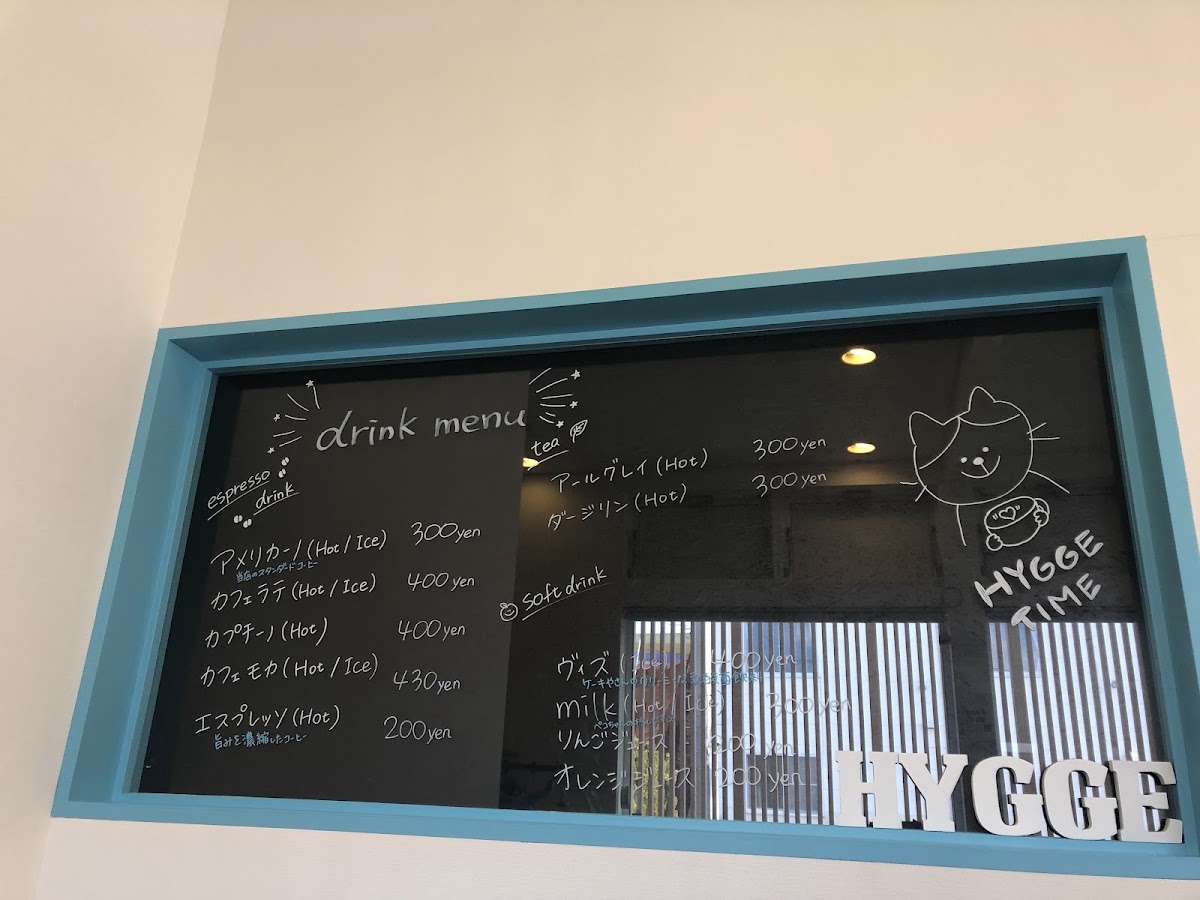 drink menu
espresso
drink
アメリカーノ(Hot / Ice) 300yen
当店のスタンダードコーヒー
カフェラテ(Hot / Ice) 400yen
カプチーノ(Hot) 400yen
カフェモカ(Hot / Ice) 430yen
エスプレッソ(Hot) 200yen
旨みを濃縮したコーヒー
tea
アールグレイ(Hot) 300yen
ダージリン(Hot) 300yen
soft drink
ヴィズ(Ice) 400yen
ケーキやさんのクリーミーな
milk(Hot / Ice) 300yen
りんごジュース 200 yen
オレンジジュース 200 yen
HYGGE
TIME
HYGGE